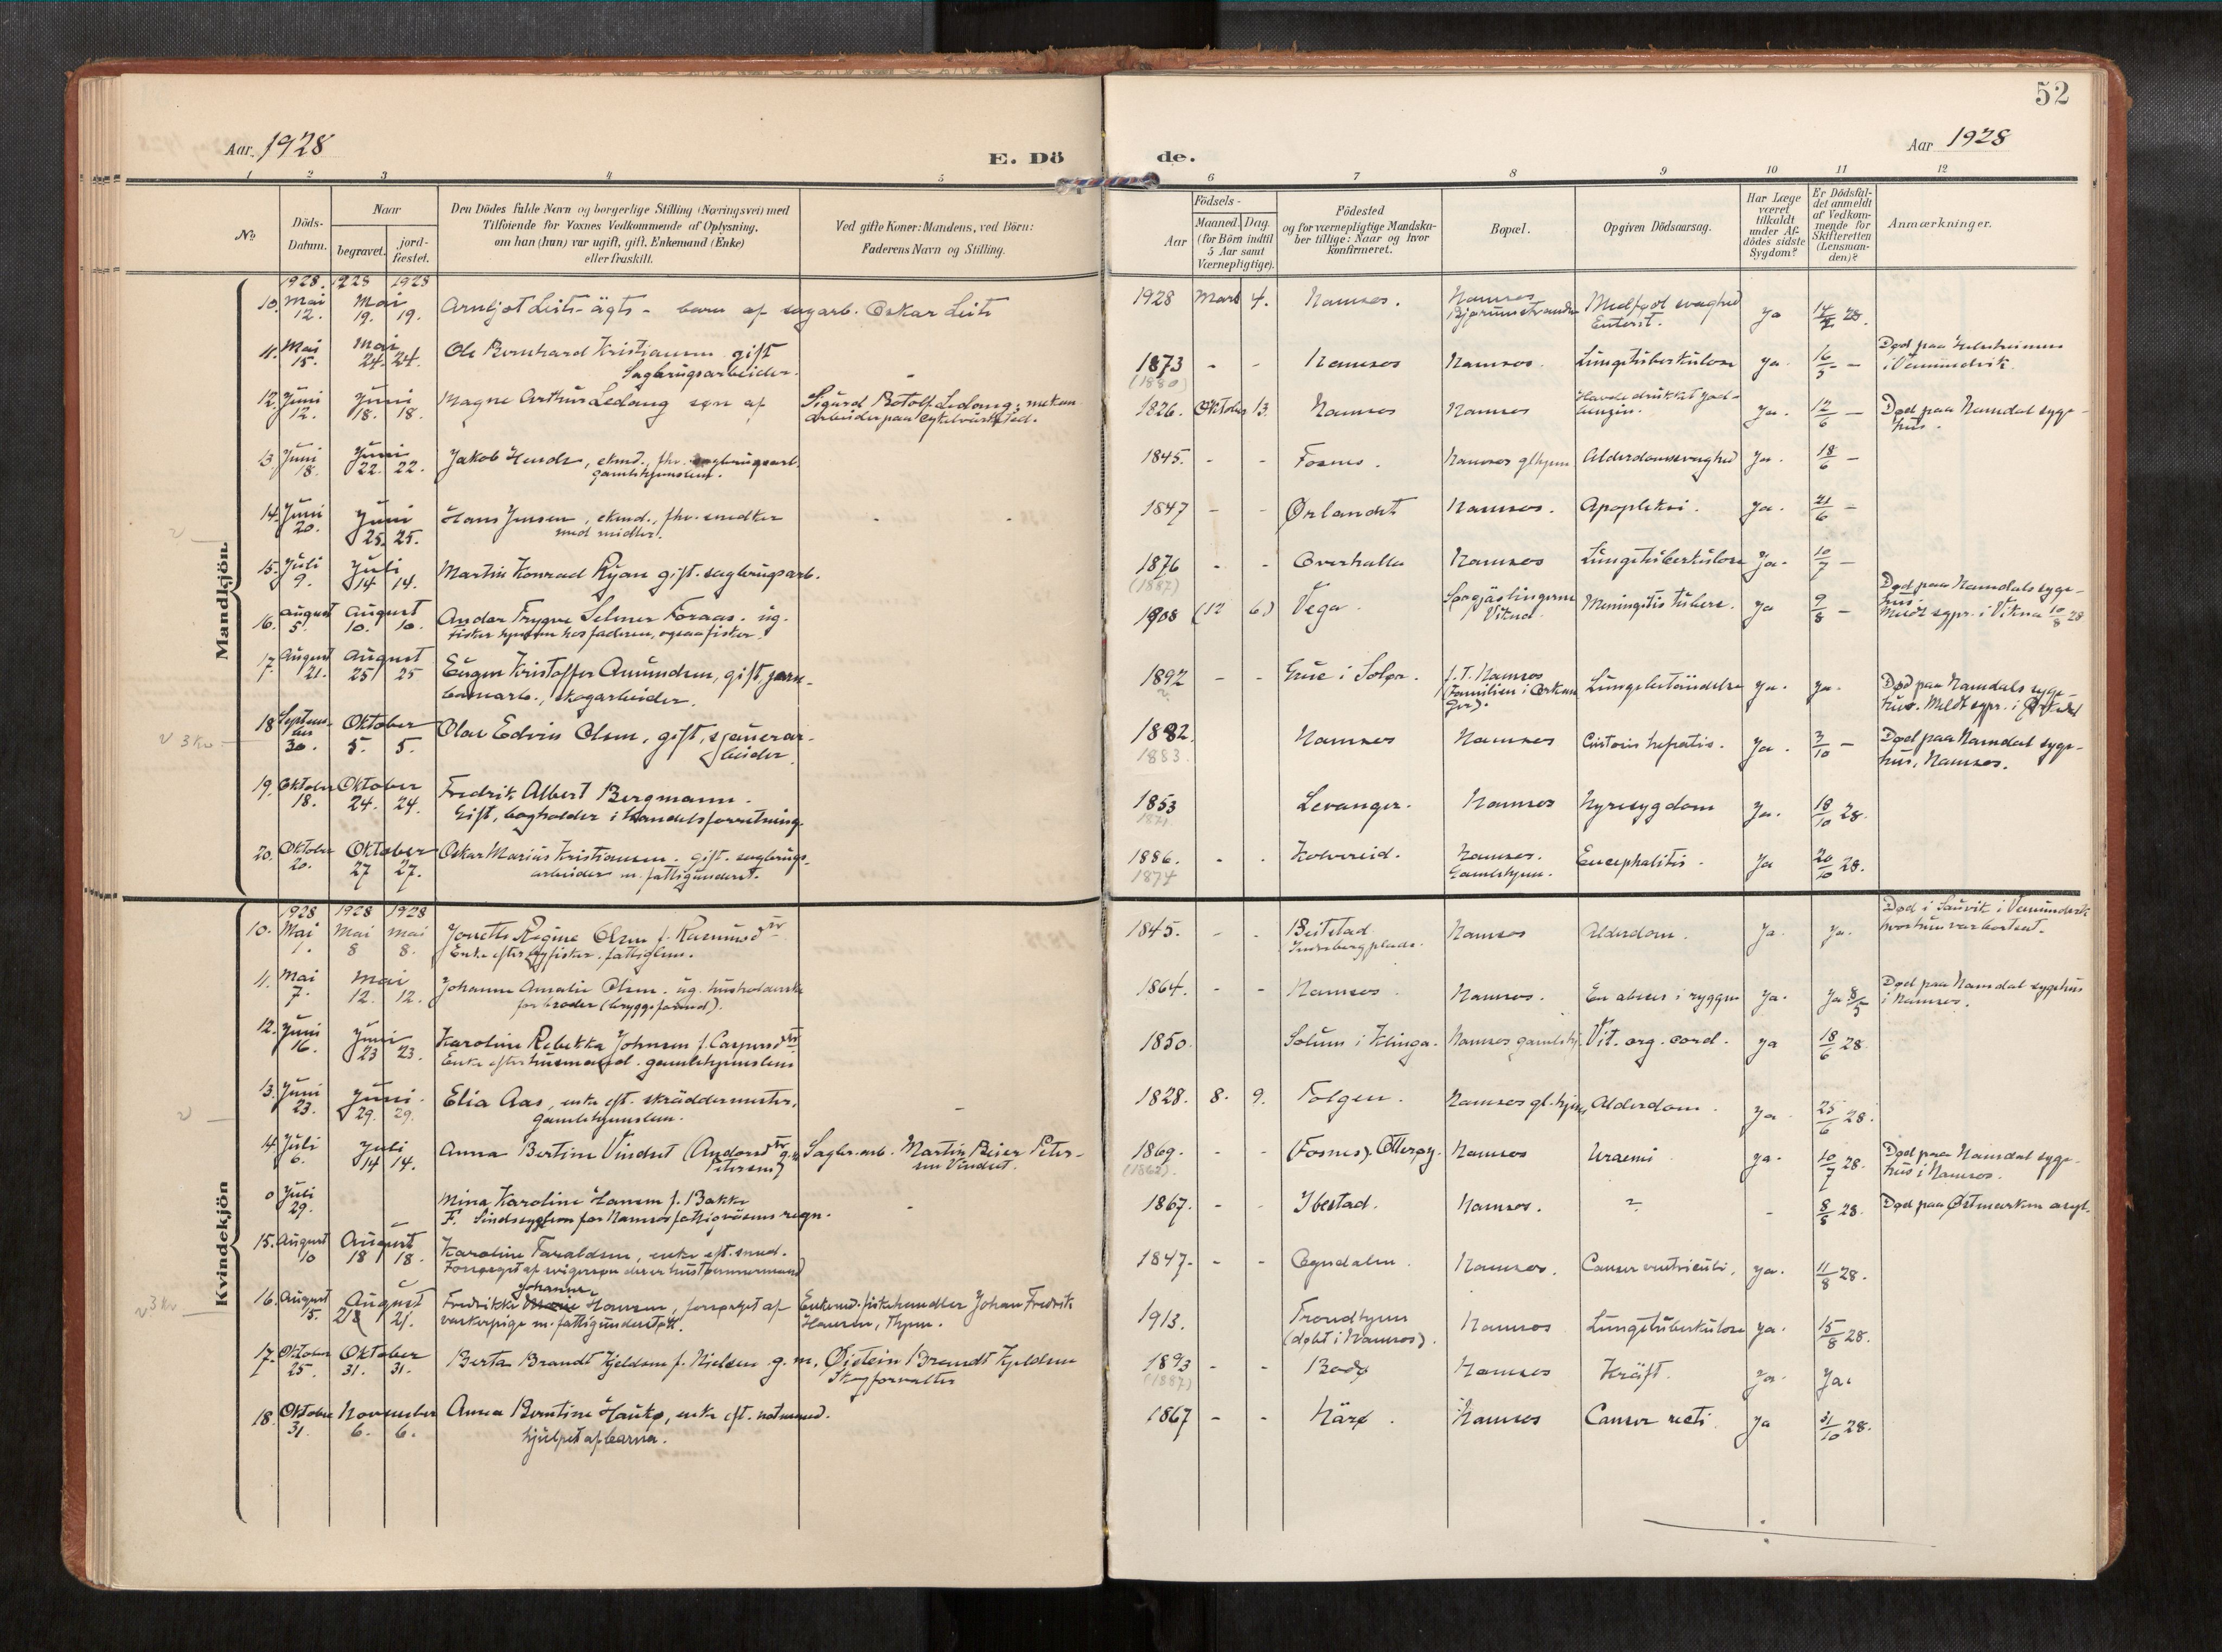 52
Aar 1928
E. Dö
de.
Aar 1928
1 2 3 4 5 6 7 8 9 10 11 12
No
Döds-
Datum.
Naar
begravet.
jord-
fæstet.
Den Dödes fulde Navn og borgerlige Stilling (Næringsvei) med
Tilföiende for Voxnes Vedkommende af Oplysning,
om han (hun) var ugift, gift, Enkemand (Enke)
eller fraskilt.
Ved gifte Koner: Mandens, ved Börn:
Faderens Navn og Stilling.
Födsels-
Aar
Maaned. Dag.
(for Börn indtil
5 Aar samt
Værnepligtige).
Födested
og for værnepligtige Mandska-
ber tillige: Naar og hvor
Konfirmeret.
Bopæl.
Opgiven Dödsaarsag.
Har Læge
været
tilkaldt
under Af-
dödes sidste
Sygdom?
Er Dödsfal-
det anmeldt
af Vedkom-
mende for
Skifteretten
(Lensman-
den)?
Anmærkninger.
Mandkjön.
1928. 1928 1928
10. Mai 12. Mai 19. 19. Arnljot Leits - ägte - barn af sagarb. Oskar Leits 1928 Mars 4. Namsos. Namsos Medfødt svaghed Ja 28.
Enterit.
11. Mai 15. Mai 24. 24. Ole Bernhard Kristiansen gift 1873 - - Namsos Namsos. Lungetuberkulose Ja. 16/5 - Død paa
Sagbrugsarbeider. (1880) i Vemundvik.
12. Juni 12. Juni 18. 18. Magne Arthur Ledang søn af Sigurd Botolf Ledang, mekan. 1926. Oktober 13. Namsos Namsos Havde drukket Ja. 12/6 - Død paa Namdal syge-
arbeider paa cykelverksted. benzin. hus.
13 Juni 18. Juni 22. 22. Jakob , ekmd., fhv. sagbrugsarb. 1845. - - Fosnes. Namsos glhjem Alderdomssvaghed Ja. 18/6 -
gamlehjemslem.
14. Juni 20. Juni 25. 25. Hans Jensen, ekmd., fhv. snedker 1847 - - Ørlandet Namsos. Apoplekxi. Ja. 21/6 -
med midler.
15. Juli 9. Juli 14 14. Martin Konrad Ryan gift. sagbrugsarb. 1876 - - Overhalla Namsos Lungetuberkulose Ja. 10/7 -
(1887)
16. August 5. August 10. 10. Andor Trygve Selmer Foraas. ug. 1908 (12 6.) Vega. Meningitis tuberc. Ja 9/8 - Død paa Namdals syge-
fisker hjemme hos faderen, ogsaa fisker. Vikna. hus.
Meldt sgpr. i Vikna 10/8 28
17. August 21. August 25 25 Eugen Kristoffer Amundsen, gift, jern- 1892 - - Grue i Solør. f.T. Namsos Lungebetændelse Ja. Ja. Død paa Namdals syge-
banearb., skogarbeider. (Familien i Orkan- hus. Meldt sgpr. i Orkdal
ger).
v 3 kr 18 September 30. Oktober 5. 5. Olav Edvin Olsen, gift, sjauerar- 1882. Namsos Namsos Cirrosis hepatis. Ja. 3/10 - Død paa Namdal syge-
beider. 1883. hus, Namsos.
19. Oktober 18. Oktober 24. 24. Fredrik Albert Bergmann. 1853 Levanger. Namsos Nyresygdom Ja. 18/10 28.
Gift, bogholder i Handelsforretning. 1871
20. Oktober 20. Oktober 27 27. Oskar Marius Kristiansen. gift. sagbrugs- 1886. - - Kolvereid. Namsos. Encephalitis. Ja 20/10 28.
arbeider m. fattigunderst. 1874 Gamlehjem.
Kvindekjön
1928 1928 1928
10. Mai 1. Mai 8 mai 8. Jonette Regine Olsen f. Rasmusdtr 1845. - - Beitstad Namsos Alderdom. Ja. Ja. Død i i Vemundvik
Enke efter fisker. fattiglem. hvor hun var bortsat.
11. Mai 7. Mai 12. 12. Johanne Amalie Olsen. ug. husholderske 1864. - - Namsos Namsos. En absces i ryggen Ja. Ja 8/5 Død paa Namdal sygehus
for broder (bryggeformd). i Namsos.
12. Juni 16. Juni 23 23. Karoline Rebekka Johnsen f. Caspersdtr 1850. Solum i Klinga. Namsos gamlehj. Vit. org. cord. Ja 18/6 28
Enke efter husmand. gamlehjemslem
13. Juni 23. Juni 29. 29. Elia Aas, enke eft. skräddermester, - 1828. 8. 9. Folgen. Namsos gl.hjem Alderdom. Ja 25/6 28.
Gamlehjemslem.
14 Juli 6. Juli 14 14. Anna Bertine Vindset (Andorsdtr g.m. Sagbr.arb. Martin Beier Peter- 1869. - - (Fosnes). Otterøy. Namsos Uraemi Ja. 10/7 28. Død paa Namdal syge-
Petersen) sen Vindset. (1862). hus i Namsos.
0 Juli 29. Mina Karoline Hansen f. Bakke - 1867. - - Ibestad. Namsos. ? - 8/8 28. Død paa Østmarken asyl.
F. Sindssyg for Namsos fattigväsens regn.
15. August 10 August 18 18. Karoline Taraldsen, enke eft. smed. 1847. - - Ogndalen. Namsos. Cancer ventriculi. Ja. 11/8 28.
Forsørget af svigersøn
v 3 kr 16. August 15. August 21. 21. Fredrikke Johanne Hansen, forsørget af Enkemd. fiskehandler Johan Fredrik 1913. Trondhjem Namsos Lungetuberkulose Ja. 15/8 28.
m. fattigunderstøtt. Hansen, Thjem. (døbt i Namsos).
17. Oktober 25. Oktober 31. 31. Berta Brandt Kjeldsen f. Nielsen g. m. Øistein Brandt Kjeldsen 1893 - - Bodø Namsos Kräft. Ja. Ja.
Skogforvalter (1887)
18. Oktober 31. November 6. 6. Anna Berntine Hauke, enke eft. notmand. 1867 - - Närø. Namsos Cancer recti. Ja 31/10 28.
hjulpet af barna.